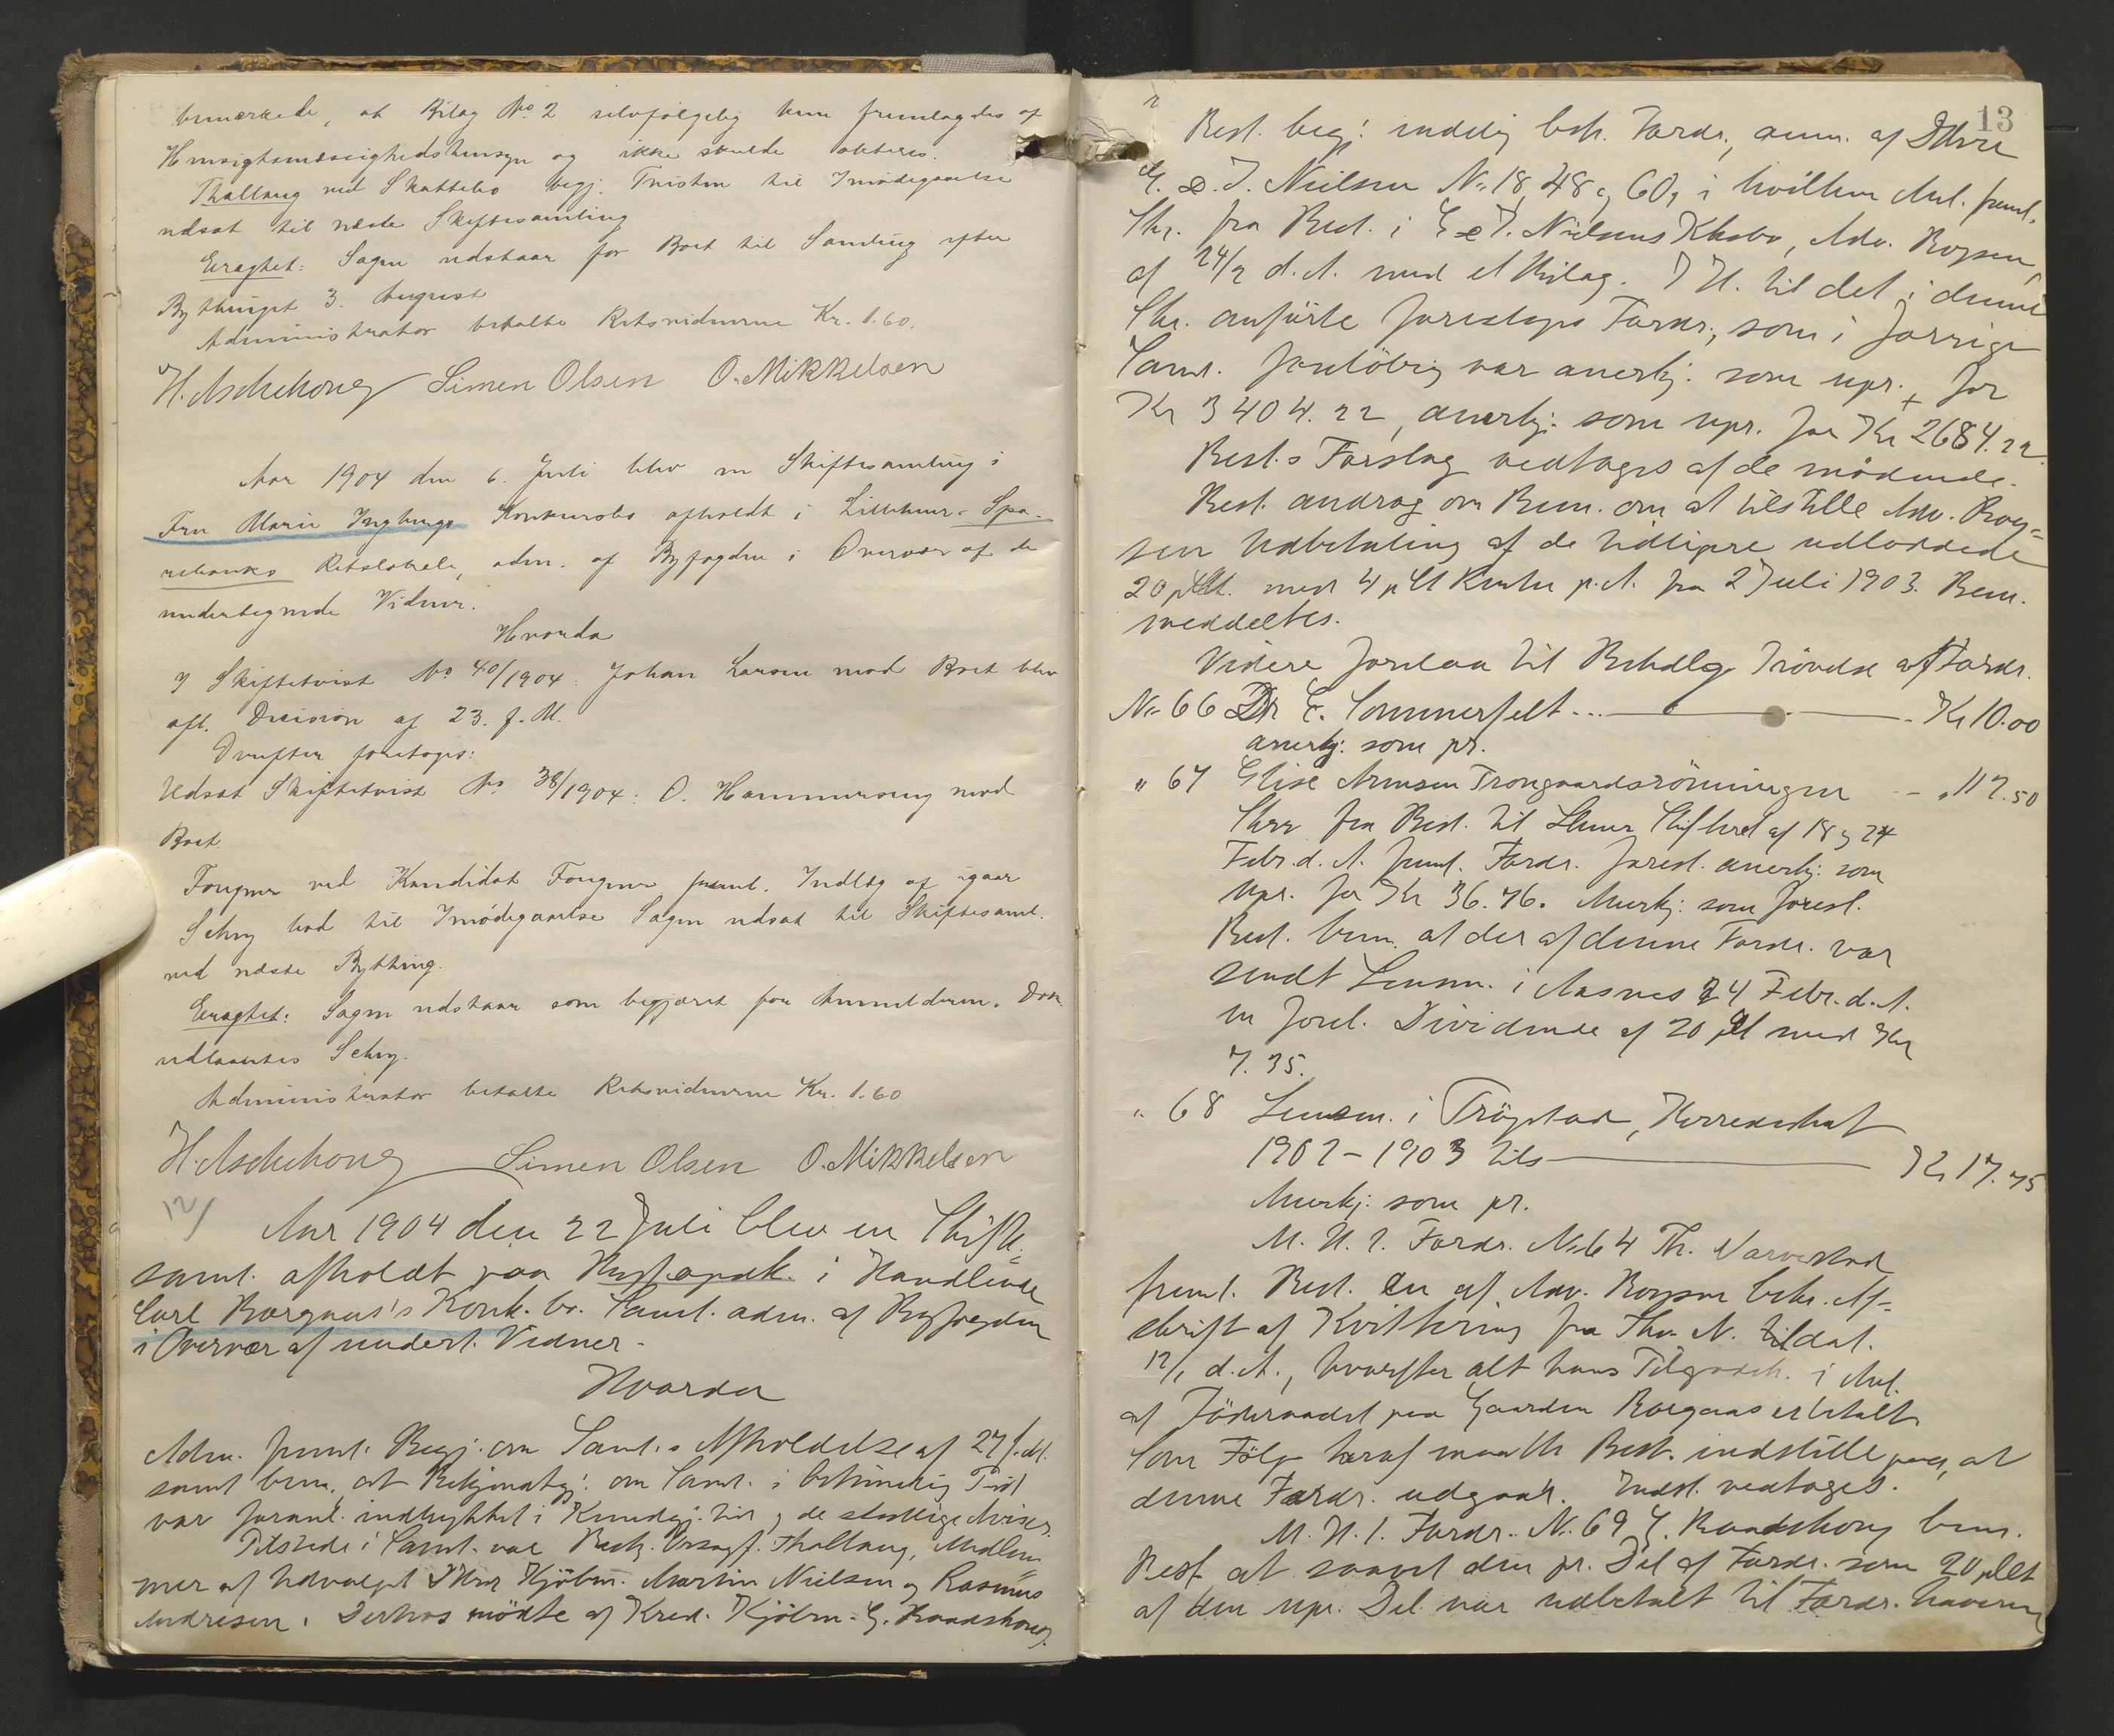 bemærkede, at Bilag No 2 selvfølgelig kun fremlagdes af
Hensigtsmæssighedshensyn og ikke skulde akteres.
Thallaug ved Skattebo begj. Fristen til Imødegaaelse
udsat til næste Skiftesamling
Eragtet: Sagen udstaar for Boet til Samling efter
Bythinget 3. August
Administrator betalte Retsvidnerne Kr. 1.60.
H. Aschehoug Simen Olsen O. Mikkelsen
Aar 1904 den 6. Juli blev en Skiftesamling i
Fru Marie Ryghaugs Konkursbo afholdt i Lillehmr. Spa-
rebanks Retslokale, adm. af Byfogden i Overvær af de
undertegnede Vidner.
Hvorda
I Skiftetvist No 40/1904: Johan Larsen mod Boet blev
afs. Decision af 23. f. M.
Drøfter foretoges:
Udsat Skiftetvist No 38/1904: O. Hammerseng mod
Boet.
Fougner ved Kandidat Fougner freml. Indlæg af igaar
Schey bad til Imødegaaelse Sagen udsat til Skiftesaml.
ved næste Bything.
Eragtet: Sagen udstaar som begjæret for Anmelderen. Dok.
udlaantes Schey.
Administrator betalte Retsvidnerne Kr. 1.60
H. Aschehoug Simen Olsen O. Mikkelsen
12/
Aar 1904 den 22 Juli blev en Skifte-
saml. afholdt paa Byf. i Handlende
Carl Borgaas's Konk. bo. Saml. adm. af Byfogden
i Overvær af undert. Vidner.
Hvorda
Adm. freml. Begj. om Saml.s Afholdelse af 27/
samt bem. at Bekjendtgj. om Saml. i betimelig Tid
var foranl. indrykket i Kundgj. tid. og de stedlige Aviser.
Tilstede i Saml. var Best. Overretssagf. Thallaug, Medlem-
mer af Udvalget DHrr Kjøbm. Martin Nielsen og Rasmus
Andresen. Derhos mödte af Kred. Kjöbm. G. Raadshoug.
13
Best. begj. endelig beh. Fordr., anm. af DHrr
G. & J. Nielsen No 18, 48 og 60, i hvilken Anl. freml.
Skr. fra Best. i G & J. Nielsens Kbo, Adv. Boysen,
af 24/2 d. A. med et Bilag. I H. til det i denne
Skr. anförte foresloges Fordr., som i forrige
Saml. foreløbig var anerkj. som upr. for
Kr 3404.22, anerkj. som upr. for Kr 2684.22.
Best.s Forslag vedtoges af de mödende.
Best. androg om Bem. om at tilstille Adv. Boy-
sen Udbetaling af de tidligere udloddede
20 pCt. med 4 pCt Rente p. A. fra 2 Juli 1903. Bem.
meddeltes.
Videre forelaa til Behdlg Prövelse af Fordr.
No 66 Dr E. Sommerfelt ... Kr 10.00
anerkj. som pr.
" 67 Elise Arnesen Trongaardsrönningen - " 112.50
Skrr fra Best. til Skifteret af 18 og 24
Febr. d. A. freml. Fordr. foresl. anerkj. som
upr. for Kr 36.76. Anerkj. som foresl.
Best. bem. at der af denne Fordr. var
sendt Lensm. i Aasnes 24 Febr. d. A.
en forel. Dividende af 20 pCt med Kr
7.35.
" 68 Lensm. i Trögstad, Herredsskat
1902 - 1903 tils Kr 17.75
Anerkj. som pr.
M. H. t. Fordr. No 64 Th.
freml. Best. en af Adv. Boysen bekr. Af-
skrift af Kvittering fra Thv. N. dat.
12/1 d. A., hvorefter alt hans Tilgodeh. i Anl.
af Föderaadet paa Gaarden Borgaas er betalt.
Som Fölge heraf maatte Best. indstille paa, at
denne Fordr. udgaar. Indst. vedtoges.
M. H. t. Fordr. No 69 G. Raadshoug bem.
Best. at saavel den pr. Del af Fordr. som 20 pCt
af den upr. Del var udbetalt til Fordr. haveren